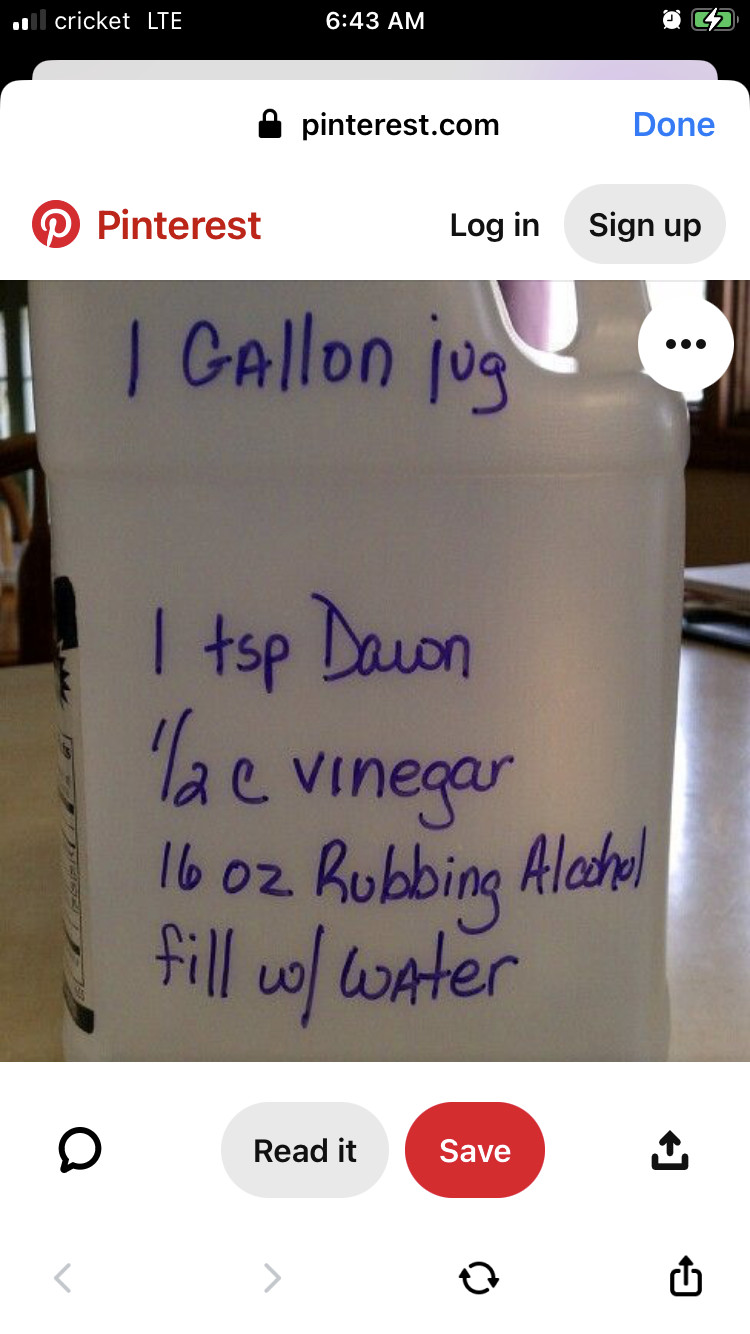 cricket LTE 6:43 AM
pinterest.com Done
Pinterest Log in Sign up
1 GAllon jug
1 tsp Dawn
1/2 c vinegar
16 oz Rubbing Alcohol
fill w/ WAter
Read it Save